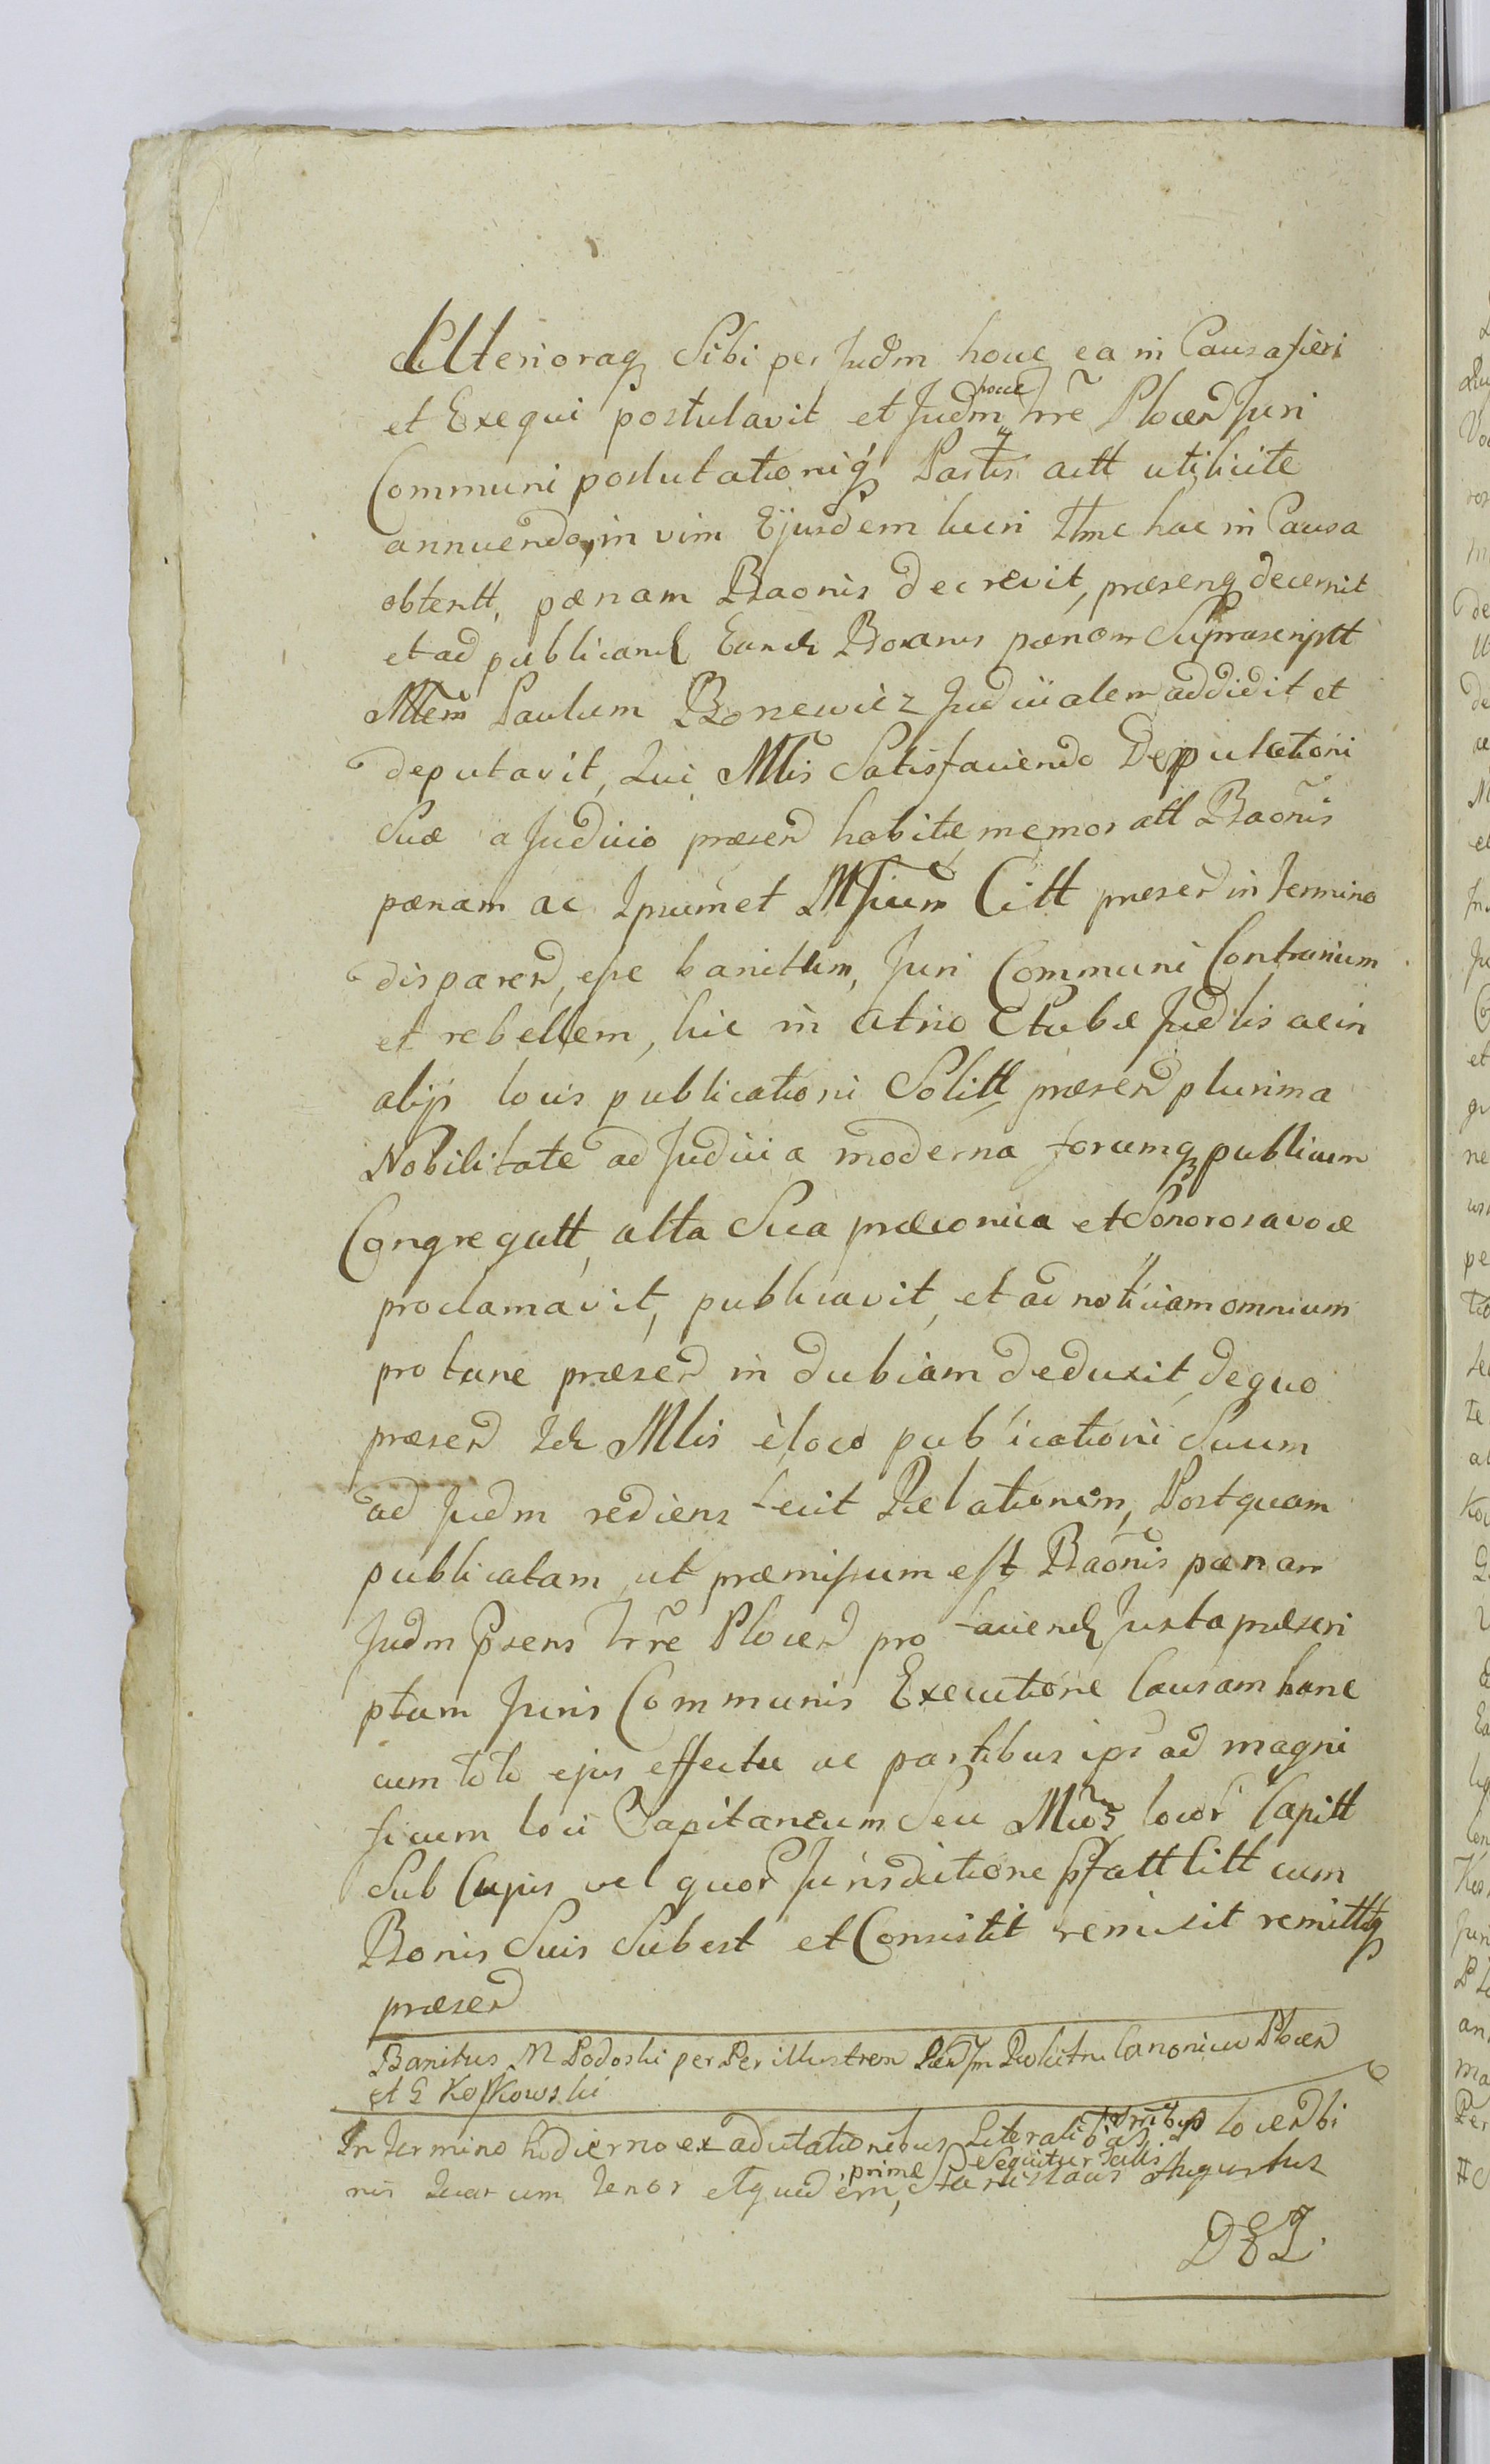 Ulterioraq Sibi per Judm hocce ea in Causa fieri
et Exequi postulavit et Judm hocce Trre Plocen Juri
Communi postulationiq Partis actt utilicite
annuendo, in vim Ejusdem lucri Ttme hac in Causa
obtentt, pænam Baonis decrevit, præsenq decernit
et ad publicand Eande Boanis pænam Suprascriptt
Mlem Paulum Bonewicz Judicialem addidit et
deputavit, Qui Mlis Satisfaciendo Deputationi
Suæ a Judicio præsen habitæ memoratt Baonis
pænam ac Ipsumet Mficum Citt præsen in Termino
disparen, esse banitum, Juri Communi Contrarium
et rebellem, hic in Atrio Stubæ Judlis ac in
alijs locis publicationi Solitt præsen plurima
Nobilitate ad Judicia moderna forumq publicum
Congregatt, alta Sua præconica et Sonorosa voce
proclamavit, publicavit, et ad noticiam omnium
pro tunc præsen in dubiam deduxit, de quo
præsen Ide Mlis e loco publicationi Suum
ad Judm rediens fecit Relationem, Postquam
publicatam, ut præmissum est Baonis pænam
Judm Psens Trre Plocen pro faciend Juxta præscri
ptum Juris Communis Executione Causam hanc
cum toto ejus effectu ac partibus ips ad magni
ficum loci Capitaneum Seu Mcos locor Capitt
Sub Cujus vel quor Jurisdictione Pfatt Citt cum
Bonis Suis Subest et Consistit remisit remittq
præsen
Banitus M Podoski per Perillustrem Canonicu Plocen
et G Kossowski
In Termino hodierno ex adcitationibus Literalib
nis Quarum Tenor et quidem primæ Sequitur Talis Stanislaus Augustus